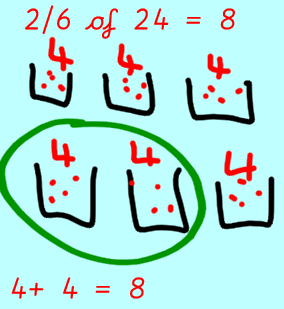 2/6 of 24 = 8
4 4 4
4 4 4
4+ 4 = 8